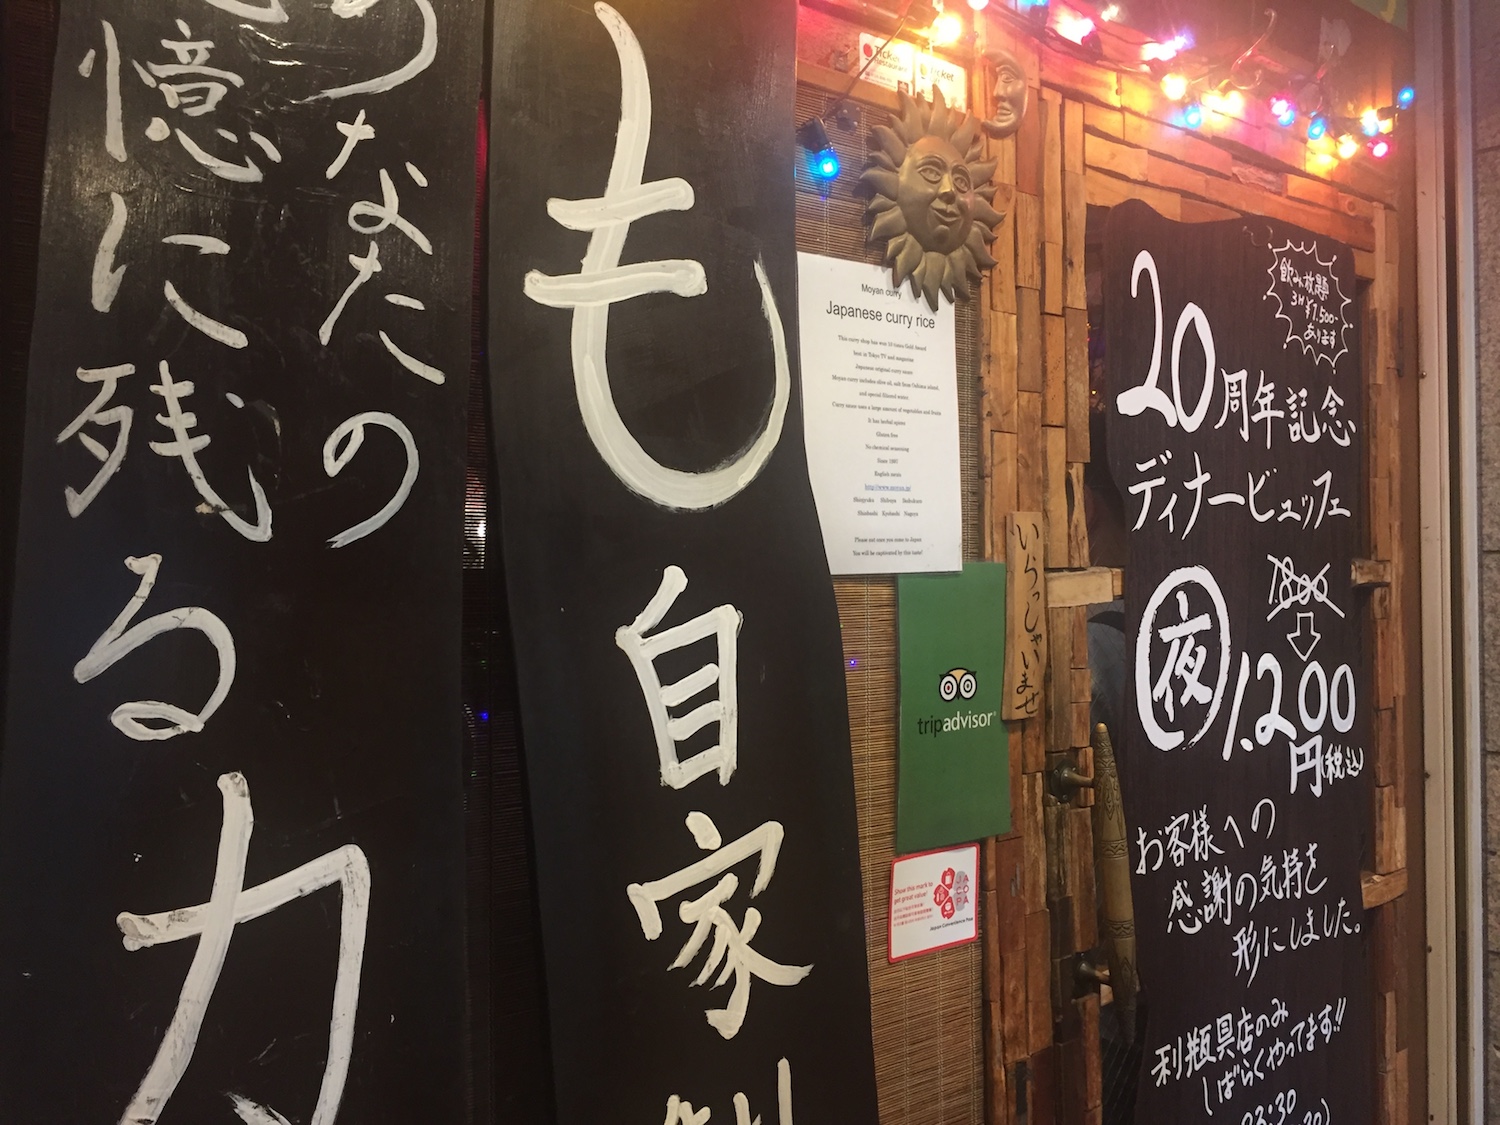 あなたの
憶に残る
カ
も
自家製
Ticket
Restaurant
Ticket
Moyan curry
Japanese curry rice
This curry shop has won 10 times Gold Award
best in Tokyo TV and magazine
Japanese original curry sauce
Moyan curry includes olive oil, salt from
and special filtered water.
Curry sauce uses a large amount of vegetables and fruits
It has herbal spices
Gluten free
No chemical seasoning
Since 1997
English menu
http://www.moyan.jp/
Shinjyuku Shibuya
Shinbashi Kyobashi Nagoya
Please eat once you come to Japan
You will be captivated by this taste!
いらっしゃいませ
tripadvisor®
Show this mark to
get great value!
JA
CO
PA
Japan Convenience Pass
飲み放題
3H¥1,500-
あります
20周年記念
ディナービュッフェ
1.800
夜 1.200
円(税込)
お客様への
感謝の気持を
形にしました。
利瓶具店のみ
しばらくやってます!!
23:30